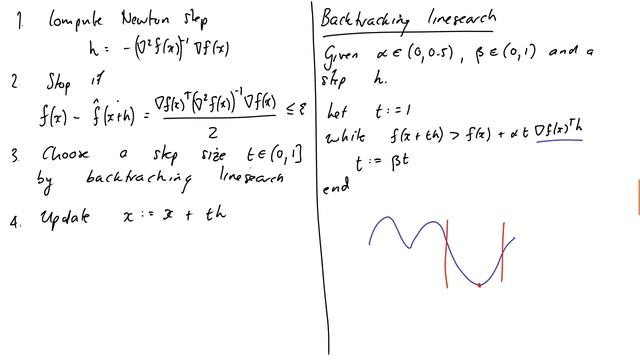 1. Compute Newton step
h = -(∇²f(x))⁻¹ ∇f(x)
2 Stop if
f(x) - f̂(x+h) = ∇f(x)ᵀ(∇²f(x))⁻¹∇f(x) / 2 ≤ ε
3. Choose a step size t ∈ (0,1]
by backtracking linesearch
4. Update x := x + th
Backtracking linesearch
Given α ∈ (0, 0.5), β ∈ (0,1) and a
step h.
Let t := 1
while f(x + th) > f(x) + αt ∇f(x)ᵀh
t := βt
end